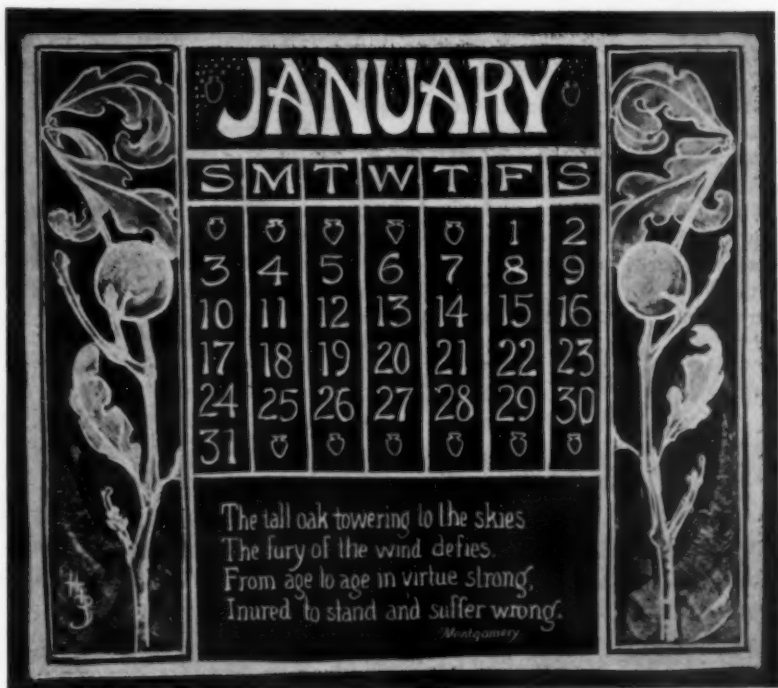 JANUARY
S M T W T F S
1 2
3 4 5 6 7 8 9
10 11 12 13 14 15 16
17 18 19 20 21 22 23
24 25 26 27 28 29 30
31
The tall oak towering to the skies
The fury of the wind defies.
From age to age in virtue strong,
Inured to stand and suffer wrong.
Montgomery